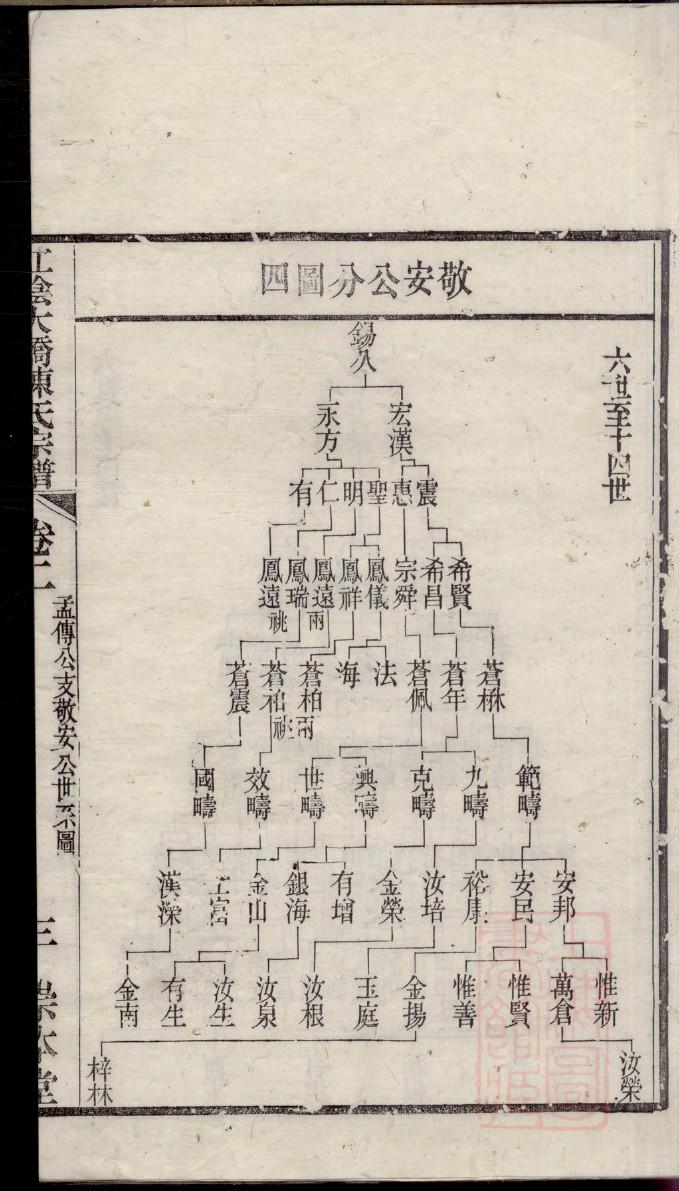 敬安公分圖四
六世至十四世
錫八
宏漢 永方
震 惠 聖 明 仁 有
希賢 希昌 宗舜 鳳儀 鳳祥 鳳遠兩 鳳瑞 鳳遠祧
蒼楙 蒼年 蒼佩 法 海 蒼柏兩 蒼柏祧 蒼震
範疇 九疇 克疇 興疇 世疇 效疇 國疇
安邦 安民 裕康 汝培 金榮 有增 銀海 金山 漢深
惟新 萬倉 惟賢 惟善 金揚 玉庭 汝根 汝泉 汝生 有生 金南
汝榮 梓林
江陰大橋陳氏宗譜
卷二
孟傳公支敬安公世系圖
三
崇本堂